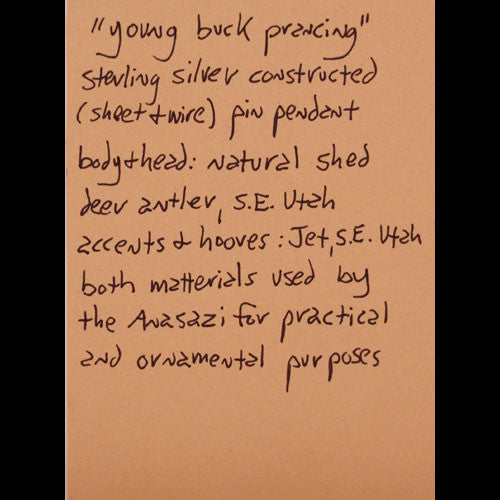 "young buck prancing"
sterling silver constructed
(sheet + wire) pin pendant
body+head: natural shed
deer antler, S.E. Utah
accents + hooves: Jet, S.E. Utah
both matterials used by
the Anasazi for practical
and ornamental purposes